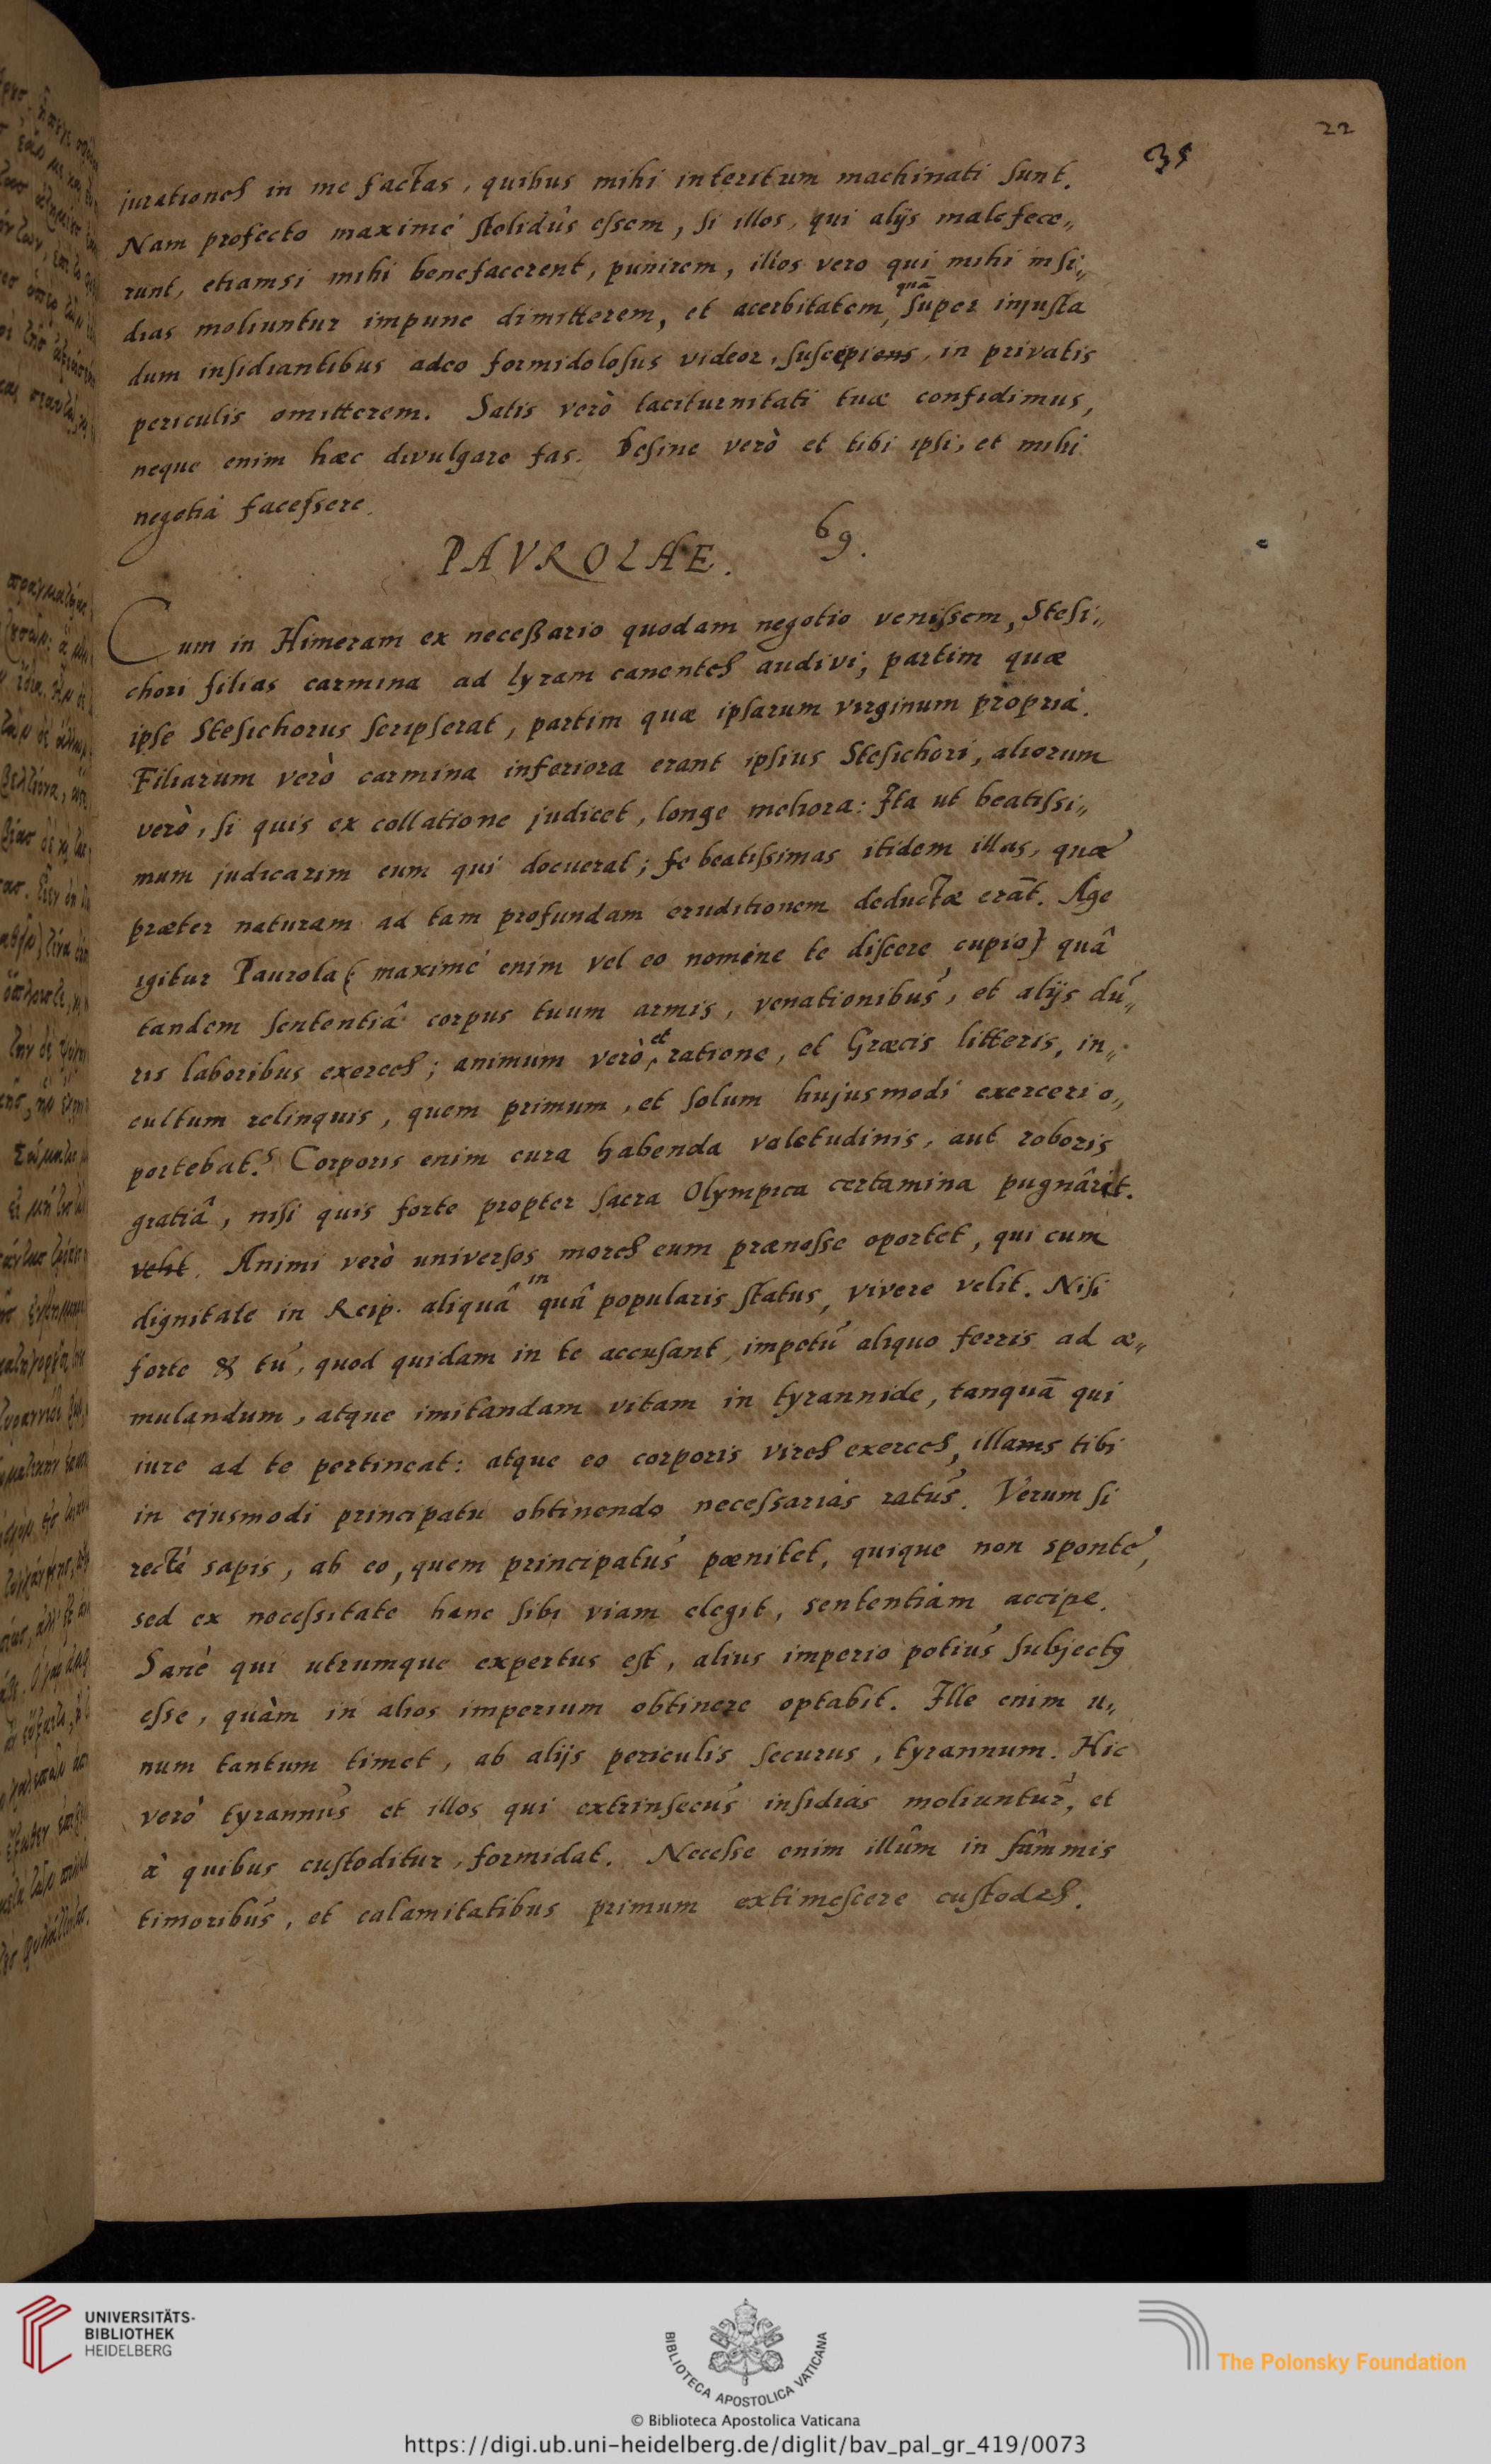 22
35
jurationes in me factas, quibus mihi interitum machinati sunt.
Nam profecto maximé stolidûs essem, si illos, qui alijs malefece„
runt, etiamsi mihi benefacerent, punirem, illos vero qui mihi insi„
dias moliuntur impune dimitterem, et acerbitatem, quā super injusta
dum insidiantibus adeo formidolosus videor, suscipiens, in privatis
periculis omitterem. Satis verò taciturnitati tuæ confidimus,
neque enim hæc divulgare fas. Desine verò et tibi ipsi, et mihi
negotia facessere.
PAVROLAE. 69.
Cum in Himeram ex necessario quodam negotio venissem, Stesi„
chori filias carmina ad lyram canentes audivi, partim quæ
ipse Stesichorus scripserat, partim quæ ipsarum virginum propria.
Filiarum verò carmina inferiora erant ipsius Stesichori, aliorum
verò, si quis ex collatione judicet, longe meliora: Ita ut beatissi„
mum judicarim eum qui docuerat; beatissimas itidem illas, quæ
præter naturam ad tam profundam eruditionem deductæ erāt. Age
igitur Paurola (maximé enim vel eo nomine te discere cupio) quâ
tandem sententiâ corpus tuum armis, venationibus, et alijs du„
ris laboribus exerces; animum verò, et ratione, et Græcis litteris, in„
cultum relinquis, quem primum, et solum hujusmodi exerceri o„
portebat? Corporis enim cura habenda valetudinis, aut roboris
gratiâ, nisi quis forte propter sacra Olympica certamina pugnârit.
velit. Animi verò universos mores eum prænosse oportet, qui cum
dignitate in Reip. aliquâ in quâ popularis status, vivere velit. Nisi
forte & tu, quod quidam in te accusant, impetu aliquo ferris ad æ„
mulandum, atque imitandam vitam in tyrannide, tanquā qui
iure ad te pertineat: atque eo corporis vires exerces, illams tibi
in ejusmodi principatu obtinendo necessarias ratus. Verum si
recté sapis, ab eo, quem principatus pœnitet, quique non sponte,
sed ex necessitate hanc sibi viam elegit, sententiam accipe.
Sanè qui utrumque expertus est, alius imperio potius subjectus
esse, quàm in alios imperium obtinere optabit. Ille enim u„
num tantum timet, ab alijs periculis securus, tyrannum. Hic
verò tyrannus et illos qui extrinsecus insidias moliuntur, et
à quibus custoditur, formidat. Necesse enim illûm in sûmmis
timoribus, et calamitatibus primum extimescere custodes.
UNIVERSITÄTS-
BIBLIOTHEK
HEIDELBERG
BIBLIOTECA APOSTOLICA VATICANA
The Polonsky Foundation
© Biblioteca Apostolica Vaticana
https://digi.ub.uni-heidelberg.de/diglit/bav_pal_gr_419/0073